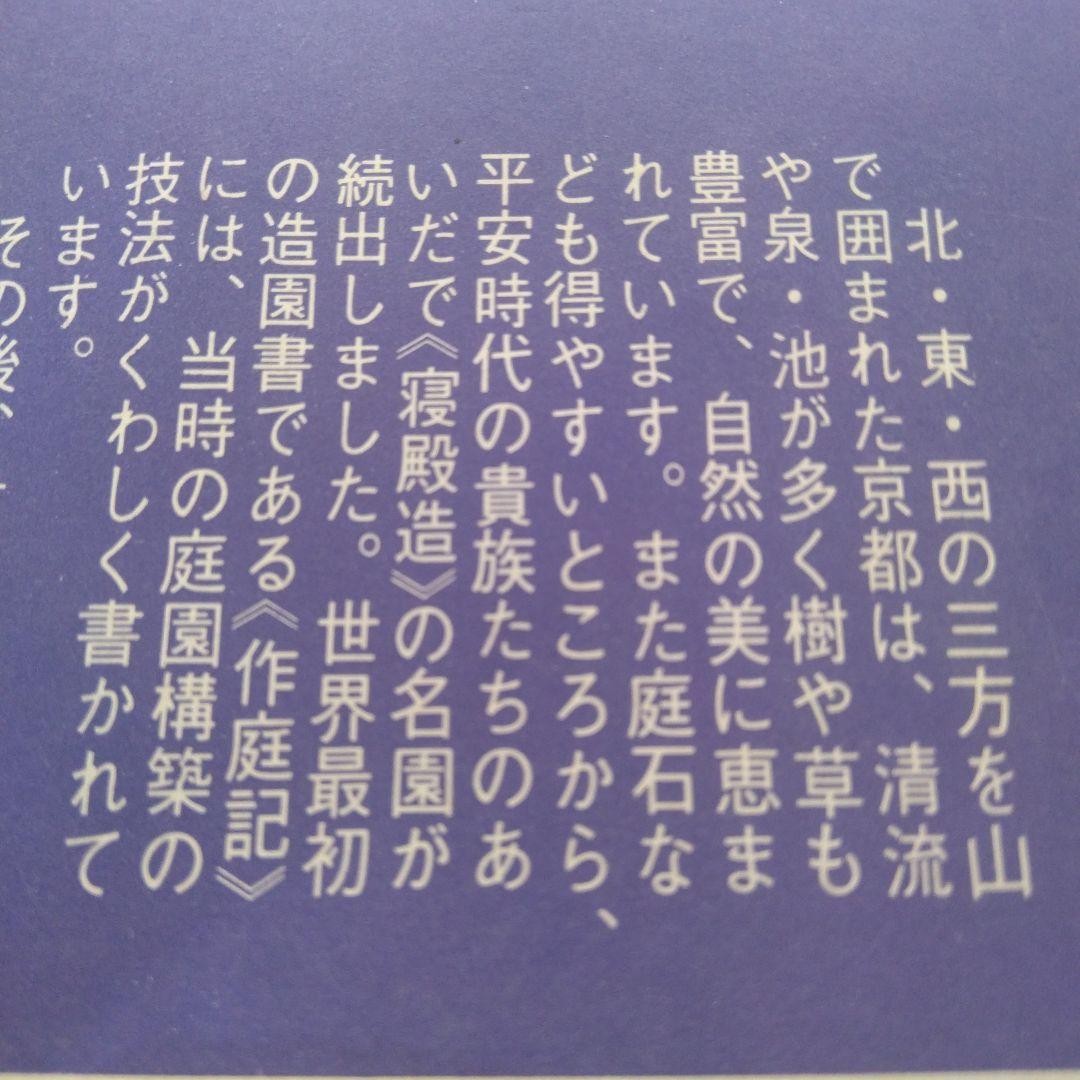 北・東・西の三方を山
で囲まれた京都は、清流
や泉・池が多く樹や草も
豊富で、自然の美に恵ま
れています。また庭石な
ども得やすいところから、
平安時代の貴族たちのあ
いだで《寝殿造》の名園が
続出しました。世界最初
の造園書である《作庭記》
には、当時の庭園構築の
技法がくわしく書かれて
います。
その後、